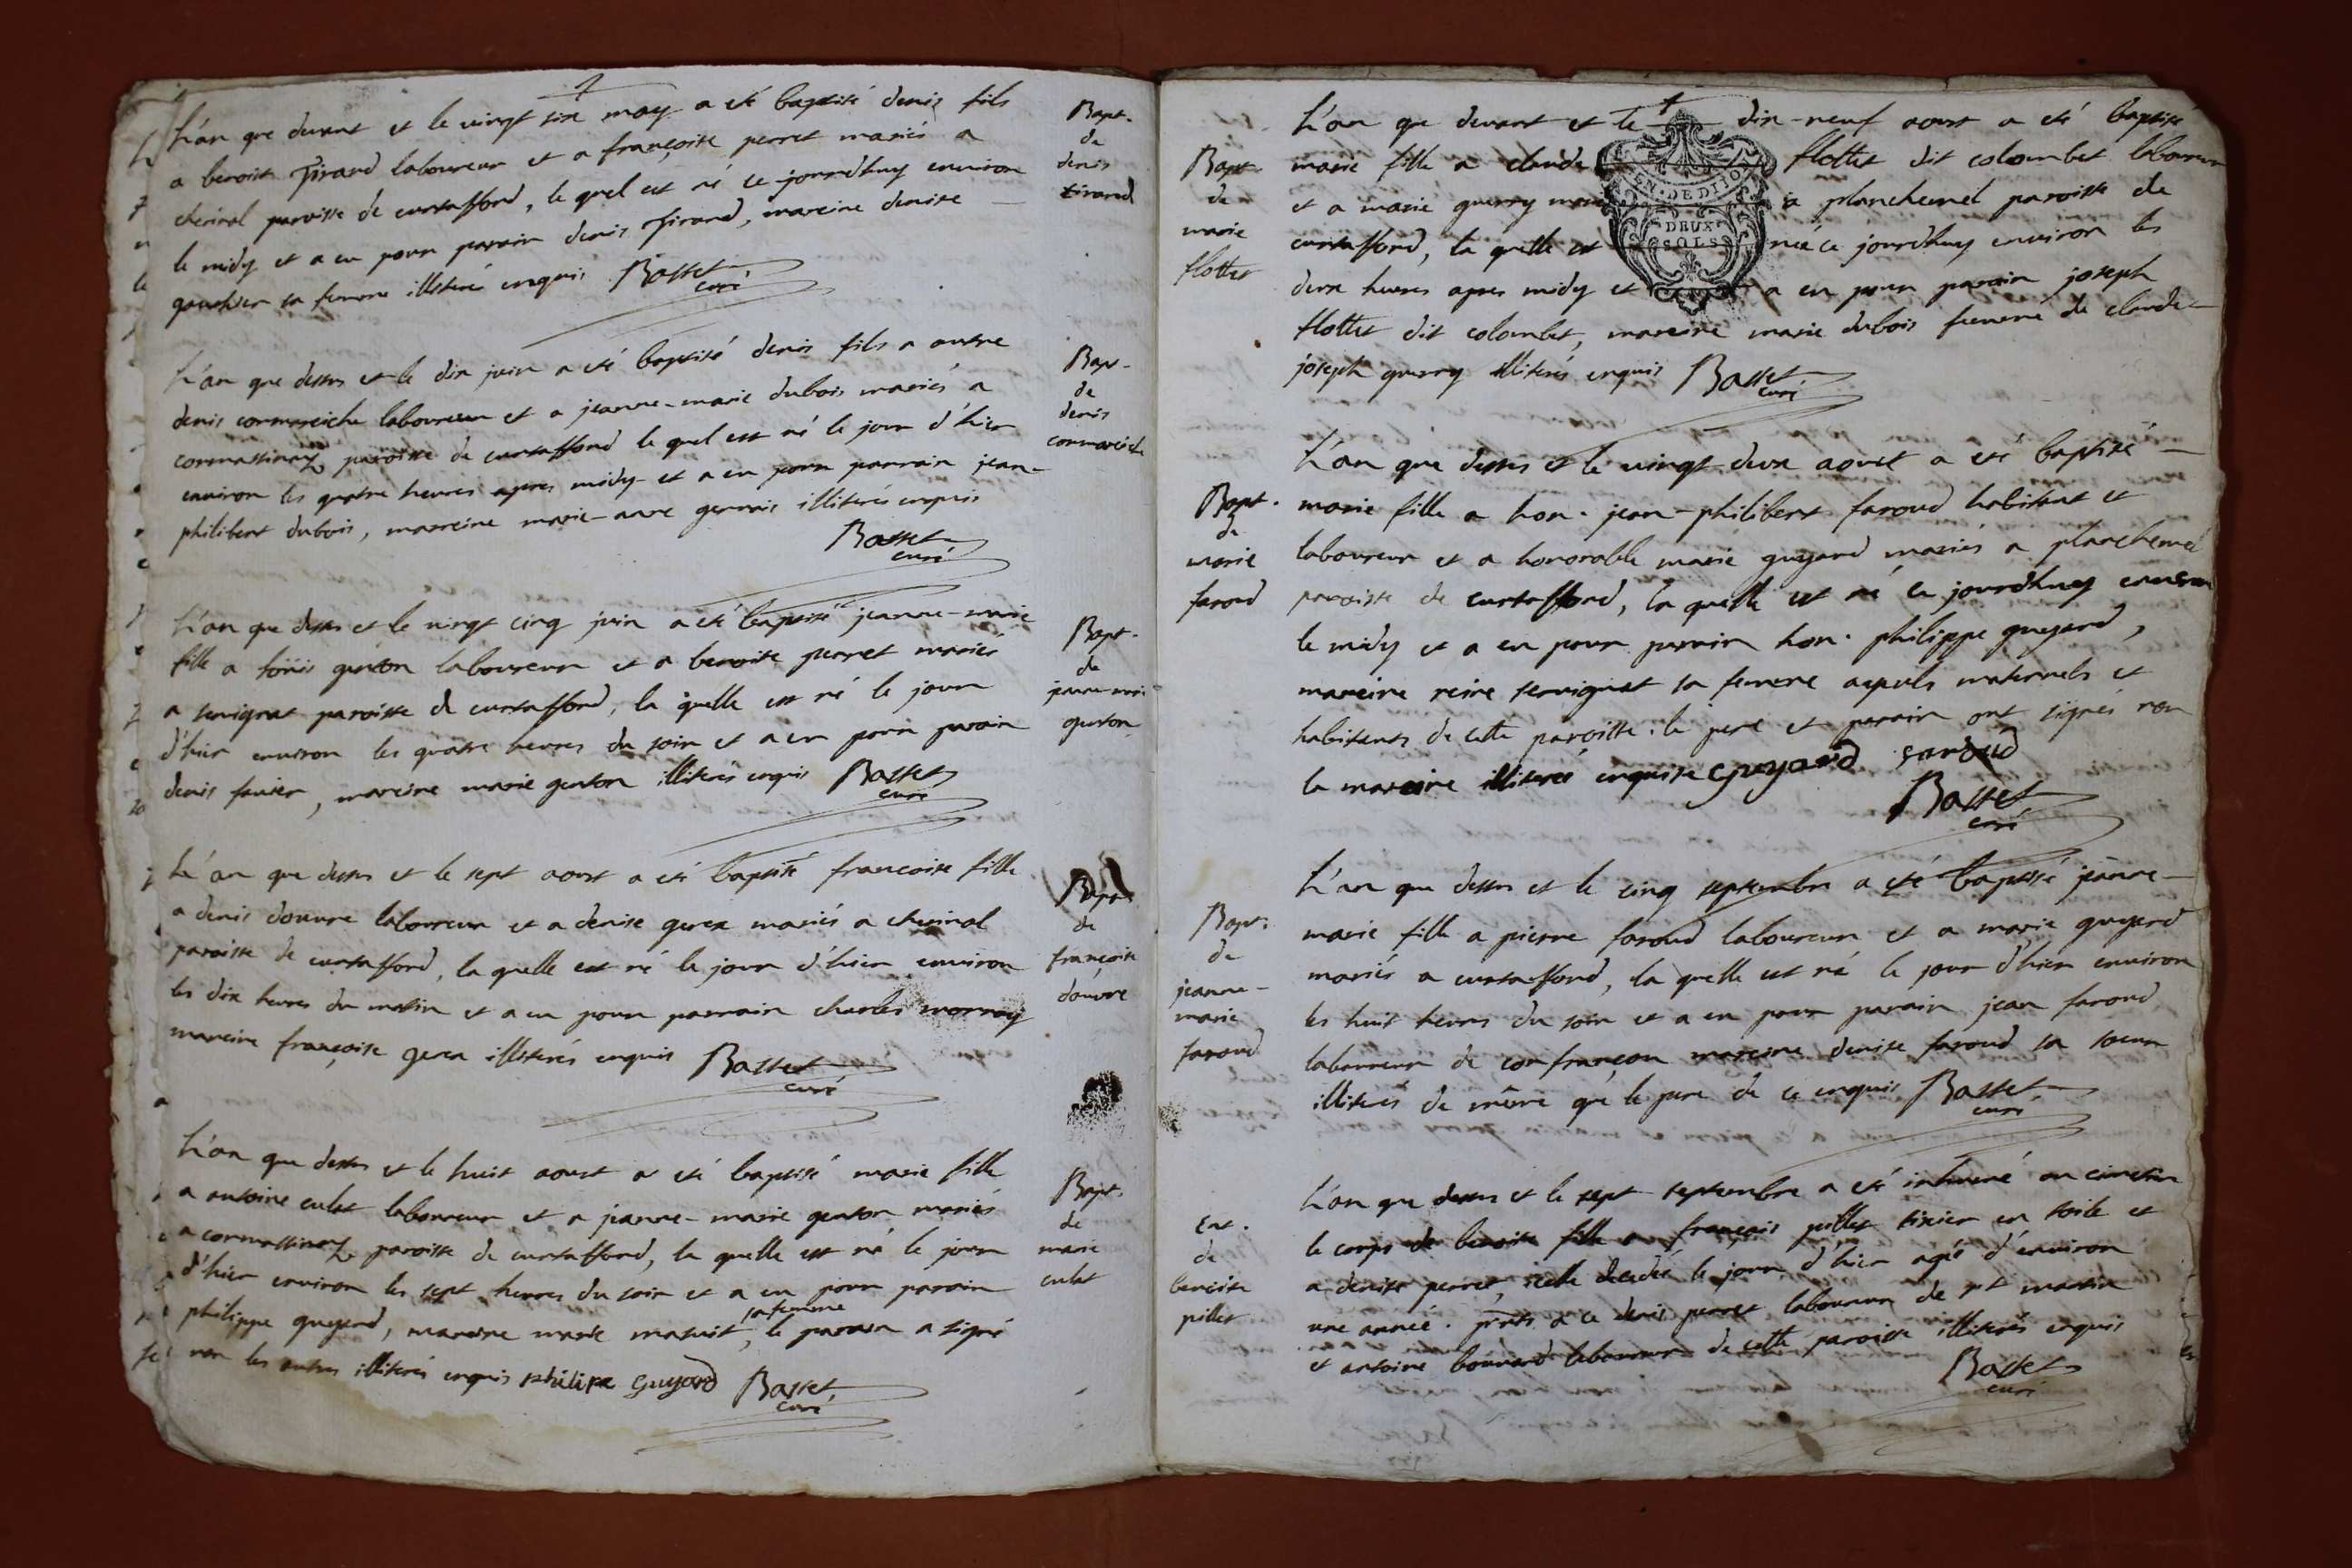 L'an que devant et le vingt six may a eté baptisé denis fils
a benoist Tirand laboureur et a françoise perret mariés a
cherinal paroisse de curtafford, le quel est né ce jourdhuy environ
le midy et a eu pour parain denis Tirand, mareine denise
gauthier sa femme illiterés enquis Basset
curé
Bapt.
de
denis
tirand
L'an que dessus et le dix juin a eté baptisé denis fils a autre
denis cormareiche laboureur et a jeanne-marie dubois mariés a
cormassinay paroisse de curtafford le quel est né le jour d'hier
environ les quatre heures apres midy et a eu pour parrain jean-
philibert dubois, mareine marie-anne gervais illiterés enquis
Basset
curé
Bapt.
de
denis
cormareiche
L'an que dessus et le vingt cinq juin a eté baptisé jeanne-marie
fille a genton laboureur et a benoite perret mariés
a sevignat paroisse de curtafford, la quelle est né le jour
d'hier environ les quatre heures du soir et a eu pour parain
denis favier, mareine marie genton illiterés enquis Basset
curé
Bapt.
de
jeanne-marie
genton
L'an que dessus et le sept aoust a eté baptisé francoise fille
a denis douvre laboureur et a denise gerex mariés a cherinal
paroisse de curtafford, la quelle est né le jour d'hier environ
les dix heures du matin et a eu pour parrain charles morray
mareine françoise gerex illiterés enquis Basset
curé
Bapt.
de
françoise
douvre
L'an que dessus et le huit aoust a eté baptisé marie fille
a antoine culet laboureur et a jeanne-marie genton mariés
a cormassinay paroisse de curtafford, la quelle est né le jour
d'hier environ les sept heures du soir et a eu pour parain
philippe guyard, mareine marie masuit, sa femme le parain a signé
non les autres illiterés enquis philipe Guyard Basset
curé
Bapt.
de
marie
culet
L'an que devant et le dix-neuf aoust a eté baptisé
marie fille a claude flottet dit colombet laboureur
et a marie guerry mariés a plancheinel paroisse de
curtafford, la quelle est née ce jourdhuy environ les
deux heures apres midy et a eu pour parain joseph
flottet dit colombet, mareine marie dubois femme de claude-
joseph guerry illiterés enquis Basset
curé
EN. DE DIJON
DEUX
SOLS
Bapt.
de
marie
flottet
L'an que dessus et le vingt-deux aoust a eté baptisé
marie fille a hon. jean-philibert faroud habitant et
laboureur et a honorable marie guyard mariés a plancheinel
paroisse de curtafford, la quelle est né ce jourdhuy environ
le midy et a eu pour parain hon. philippe guyard,
mareine reine servignat sa femme ayeuls maternels et
habitants de cette paroisse. le pere et parain ont signés non
la mareine illiteré enquise Guyard faroud
Basset
curé
Bapt.
de
marie
faroud
L'an que dessus et le cinq septembre a eté baptisé jeanne-
marie fille a pierre faroud laboureur et a marie guyard
mariés a curtafford, la quelle est né le jour d'hier environ
les huit heures du soir et a eu pour parain jean faroud
laboureur de confrançon mareine denise faroud sa soeur
illiterés de même que le pere de ce enquis Basset
curé
Bapt.
de
jeanne-
marie
faroud
L'an que dessus et le sept septembre a eté inhumé au cimetier
le corps de benoite fille a françois pillet tixier en toile et
a denise perret, icelle decedé le jour d'hier agé d'environ
une année. pnts a ce denis perret laboureur de st martin
et antoine bouvard laboureur de cette paroisse illiterés enquis
Basset
curé
Ent.
de
benoite
pillet